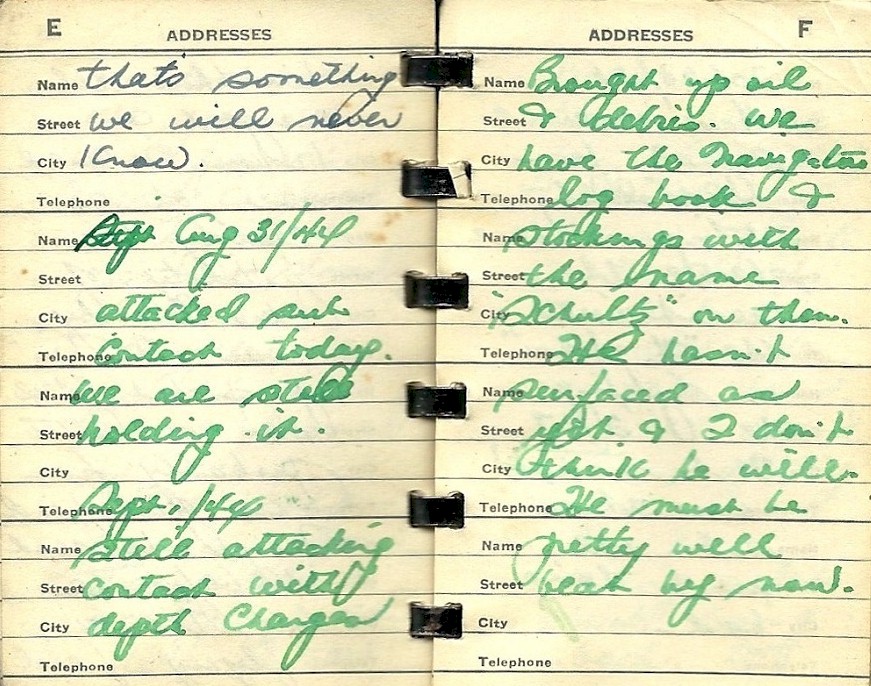 E ADDRESSES
Name thats something
Street we will never
City Know.
Telephone
Name Sept Aug 31/44
Street
City attacked sub
Telephone Contact today.
Name We are still
Street holding it.
City
Telephone Sept. 1/44
Name Still attacking
Street contact with
City depth Charges
Telephone
ADDRESSES F
Name Brought up oil
Street & debris. We
City have the Navigators
Telephone log book &
Name Stockings with
Street the name
City "Schultz" on them.
Telephone He hasn't
Name surfaced as
Street yet & I don't
City think he will.
Telephone He must be
Name pretty well
Street beat by now.
City
Telephone